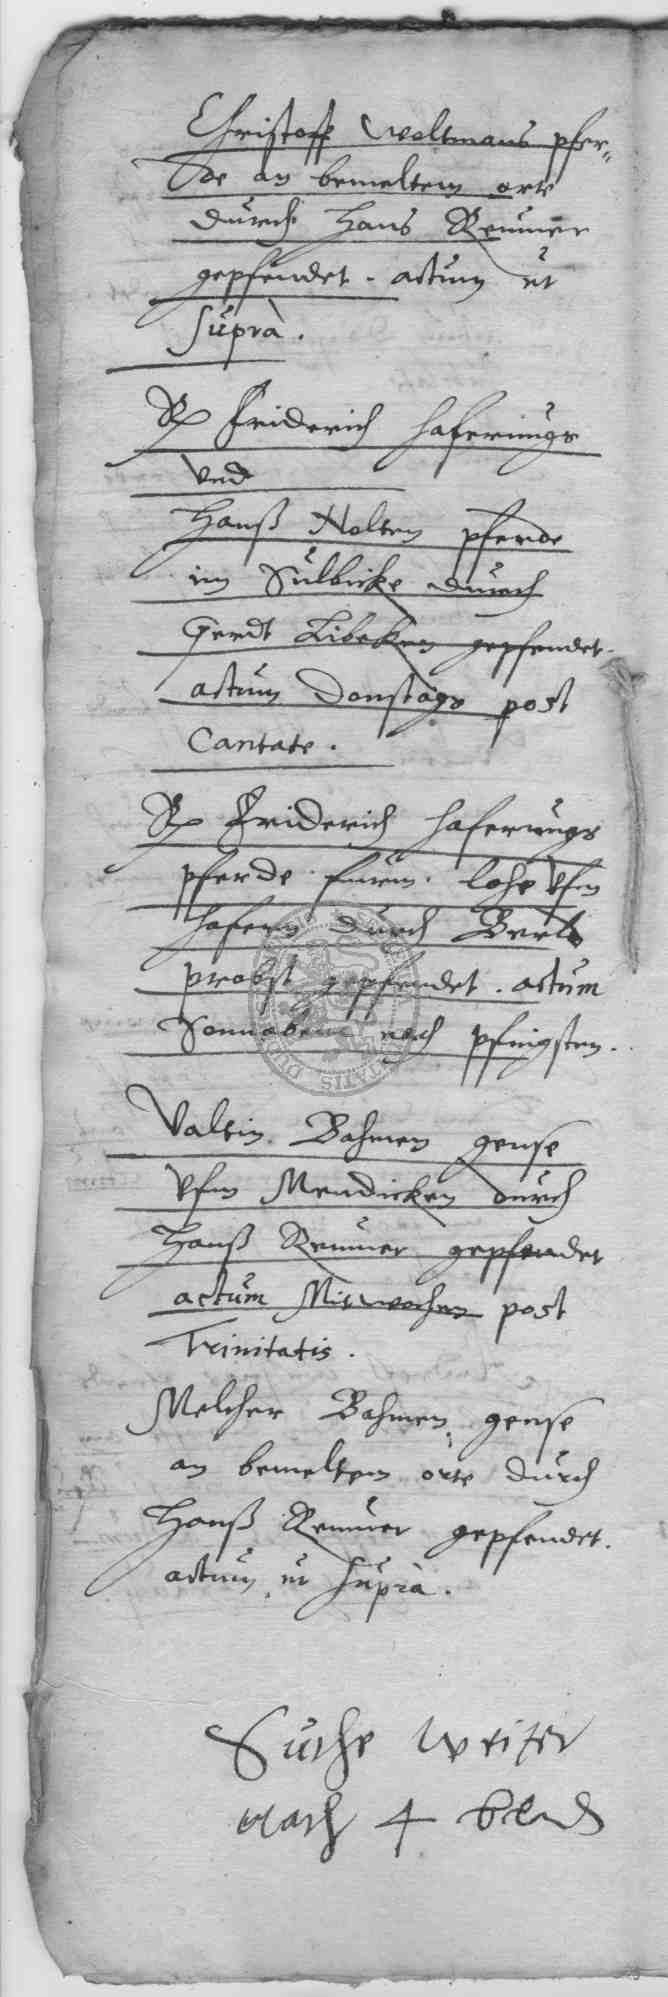 Christoff Woltmans pfer„
de an bemeltem orte
durch Hans Remmer
gepfendet. actum ut
suprà.
Friderich Haferungs
vnd
Hanß Nolten pferde
im Sülbicke durch
Gerdt Libeken gepfendet.
actum Donstags post
Cantate.
Friderich Haferungs
pferde fürm lohe vfm
hafern durch Bertt
probst gepfendet. actum
Sonnabent nach pfingsten.
Valtin Bahmen gense
vfm Mendicken durch
Hanß Remmer gepfendet
actum Mitwochen post
Trinitatis.
Melcher Bahmen gense
an bemeltem orte durch
Hanß Remmer gepfendet.
actum ut suprà.
Suche weiter
nach 4 bled